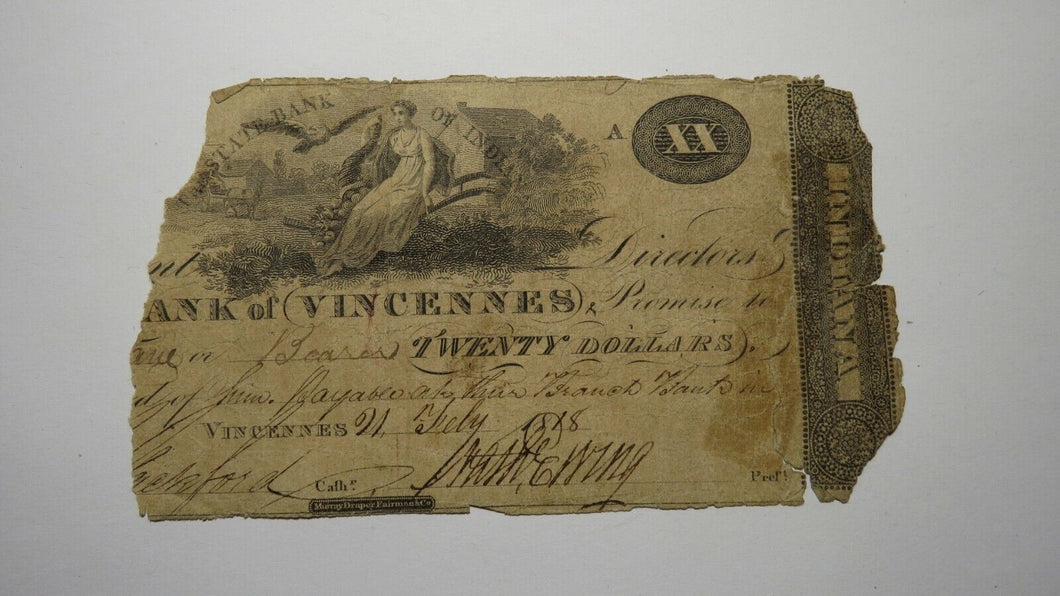 STATE BANK OF INDI
A XX
INDIANA
nt Directors
ANK of (VINCENNES) Promise to
or Bearer TWENTY DOLLARS
of June. Payable at their Branch Bank in
VINCENNES 21 July 1818
Cash.r Nath. Ewing Pres.t
Murray Draper Fairman & Co